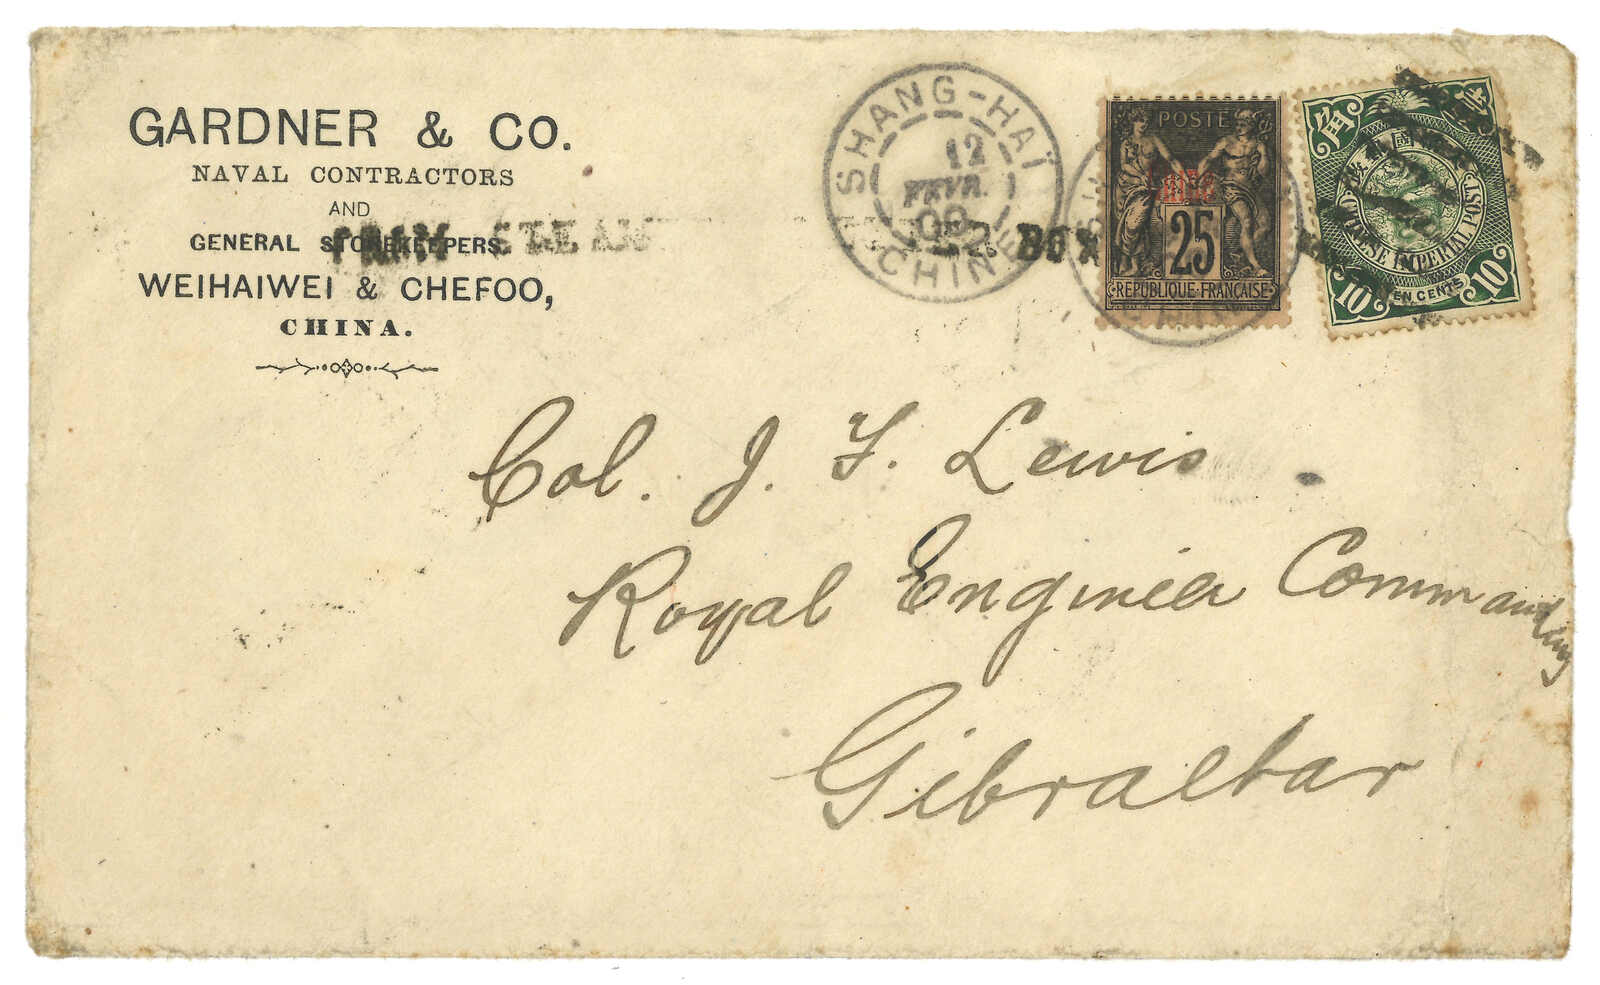 GARDNER & CO.
NAVAL CONTRACTORS
AND
GENERAL STOREKEEPERS
WEIHAIWEI & CHEFOO,
CHINA.
SHANG-HAÏ
12
FEVR.
CHINE
BOX
POSTE
Chine
25
REPUBLIQUE·FRANÇAISE
CHINESE IMPERIAL POST
10 TEN CENTS 10
Col. J. F. Lewis
Royal Engineer Commanding
Gibraltar